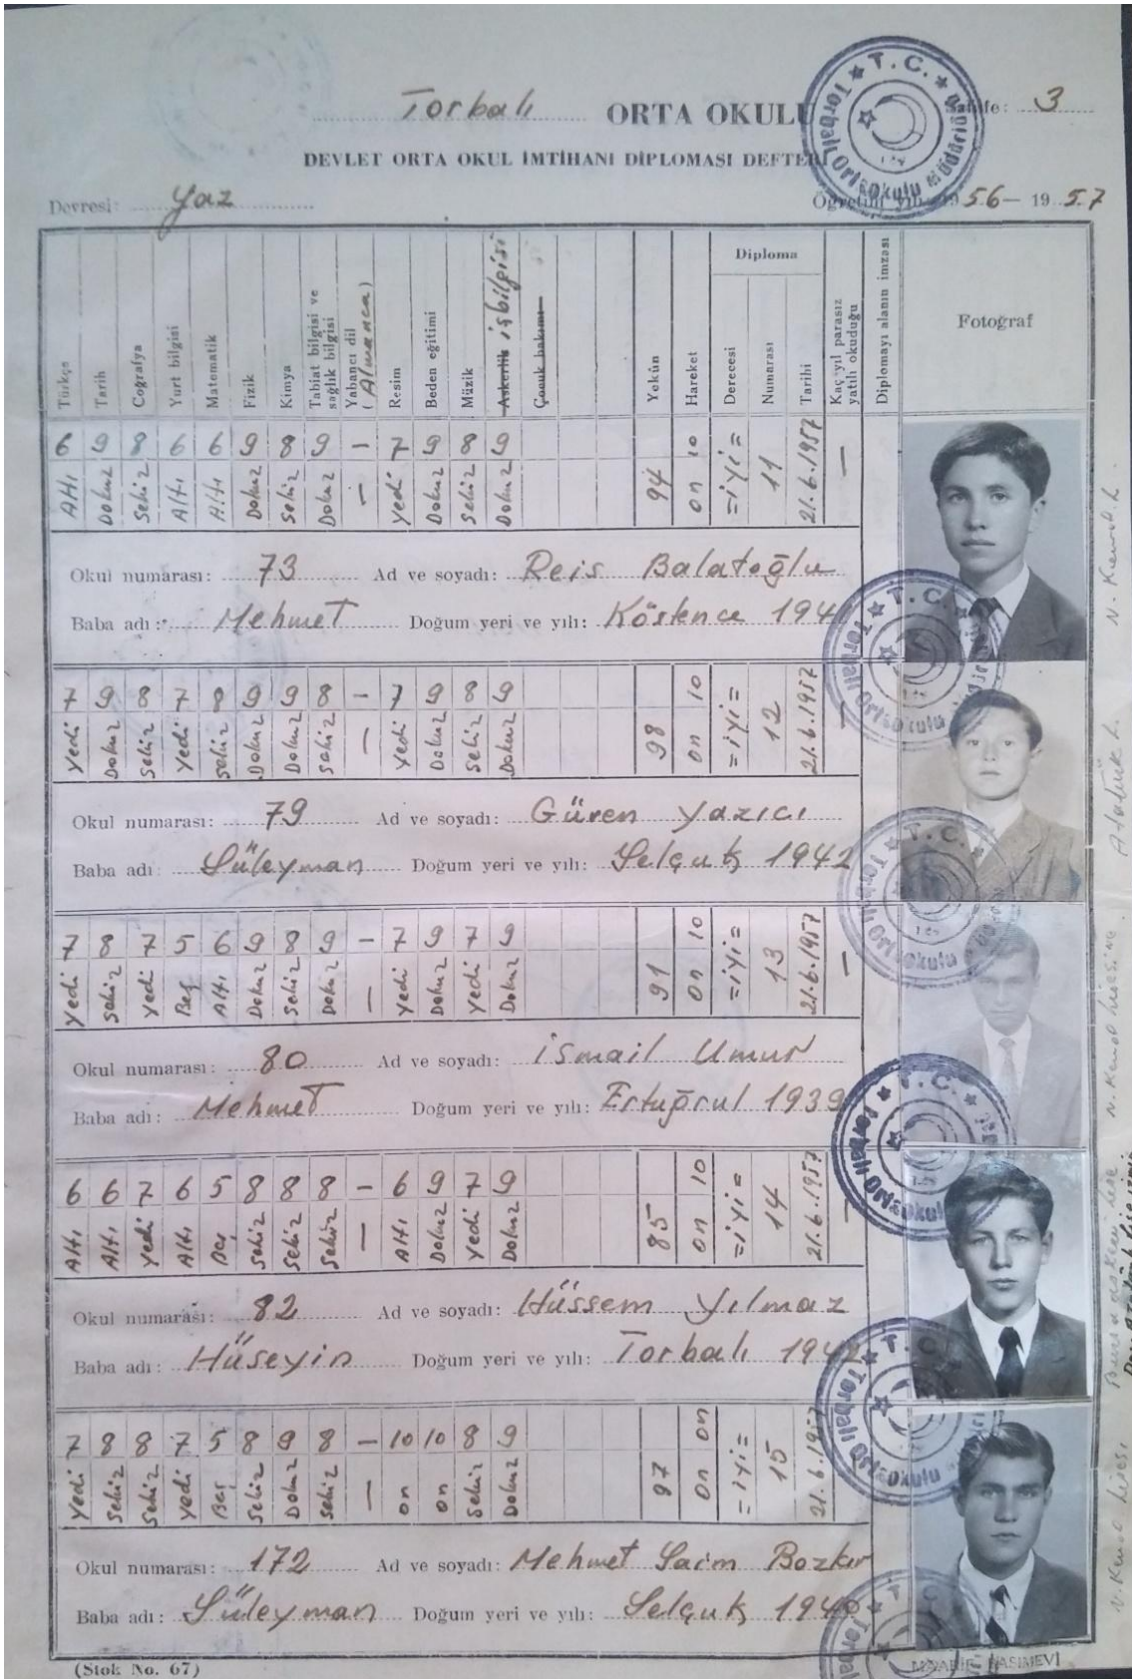 Torbalı ORTA OKULU Sahife: 3
DEVLET ORTA OKUL İMTİHANI DİPLOMASI DEFTERİ
Devresi: Yaz Öğretim yılı 1956 — 1957
T. C. Torbalı Ortaokulu Müdürlüğü
Türkçe Tarih Coğrafya Yurt bilgisi Matematik Fizik Kimya Tabiat bilgisi ve sağlık bilgisi Yabancı dil (Almanca) Resim Beden eğitimi Müzik Askerlik işbilgisi Çocuk bakımı Yekün Hareket Diploma Derecesi Numarası Tarihi Kaç yıl parasız yatılı okuduğu Diplomayı alanın imzası Fotoğraf
6 9 8 6 6 9 8 9 — 7 9 8 9 94 on 10 =iyi= 11 21.6.1957 —
Altı Dokuz Sekiz Altı Altı Dokuz Sekiz Dokuz — Yedi Dokuz Sekiz Dokuz
Okul numarası: 73 Ad ve soyadı: Reis Balatoğlu
Baba adı: Mehmet Doğum yeri ve yılı: Köstence 1941
7 9 8 7 8 9 9 8 — 7 9 8 9 98 on 10 =iyi= 12 21.6.1957 —
Yedi Dokuz Sekiz Yedi Sekiz Dokuz Dokuz Sekiz — Yedi Dokuz Sekiz Dokuz
Okul numarası: 79 Ad ve soyadı: Güren Yazıcı
Baba adı: Süleyman Doğum yeri ve yılı: Selçuk 1942
7 8 7 5 6 9 8 9 — 7 9 7 9 91 on 10 =iyi= 13 21.6.1957 —
Yedi Sekiz Yedi Beş Altı Dokuz Sekiz Dokuz — Yedi Dokuz Yedi Dokuz
Okul numarası: 80 Ad ve soyadı: İsmail Umur
Baba adı: Mehmet Doğum yeri ve yılı: Ertuğrul 1939
6 6 7 6 5 8 8 8 — 6 9 7 9 85 on 10 =iyi= 14 21.6.1957 —
Altı Altı Yedi Altı Beş Sekiz Sekiz Sekiz — Altı Dokuz Yedi Dokuz
Okul numarası: 82 Ad ve soyadı: Hüssem Yılmaz
Baba adı: Hüseyin Doğum yeri ve yılı: Torbalı 1942
7 8 8 7 5 8 9 8 — 10 10 8 9 97 on on =iyi= 15 21.6.1957
Yedi Sekiz Sekiz Yedi Beş Sekiz Dokuz Sekiz — on on Sekiz Dokuz
Okul numarası: 172 Ad ve soyadı: Mehmet Saim Bozkır
Baba adı: Süleyman Doğum yeri ve yılı: Selçuk 1940
(Stok No. 67) MAARİF BASIMEVİ
Atatürk L.
N. Kemal lisesine